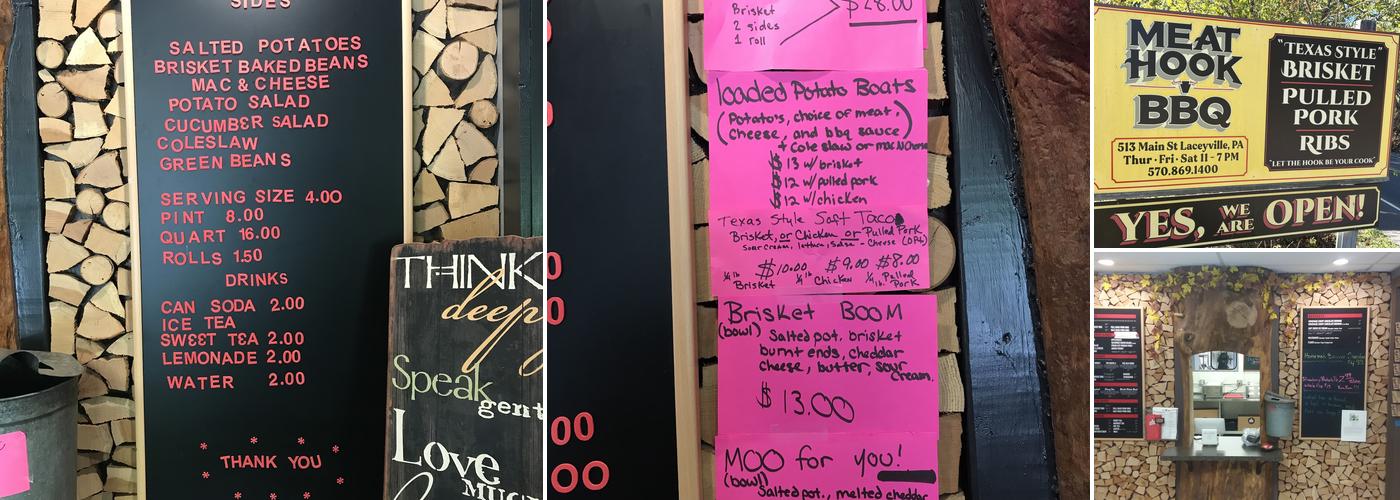 SIDES
SALTED POTATOES
BRISKET BAKED BEANS
MAC & CHEESE
POTATO SALAD
CUCUMBER SALAD
COLESLAW
GREEN BEANS
SERVING SIZE 4.00
PINT 8.00
QUART 16.00
ROLLS 1.50
DRINKS
CAN SODA 2.00
ICE TEA
SWEET TEA 2.00
LEMONADE 2.00
WATER 2.00
THANK YOU
THINK
deep
Speak
gent
Love
MUC
Brisket
2 sides
1 roll
$28.00
loaded Potato Boats
(Potato's, choice of meat,
cheese, and bbq sauce)
+ Cole slaw or mac N Cheese
$13 w/brisket
$12 w/pulled pork
$12 w/chicken
Texas Style Soft Taco
Brisket, or Chicken or Pulled Pork
Sour cream, lettuce, Salsa - Cheese (OPt)
$10.00 $9.00 $8.00
1/4 lb Brisket 1/4 lb Chicken 1/4 lb. Pulled Pork
Brisket BOOM
(bowl) Salted pot, brisket
burnt ends, cheddar
cheese, butter, sour
cream.
$13.00
MOO for you!
(bowl)
Salted pot., melted cheddar
0
0
00
00
MEAT
HOOK
BBQ
513 Main St Laceyville, PA
Thur · Fri · Sat 11 - 7 PM
570.869.1400
"TEXAS STYLE"
BRISKET
PULLED
PORK
RIBS
"LET THE HOOK BE YOUR COOK"
YES, WE ARE OPEN!